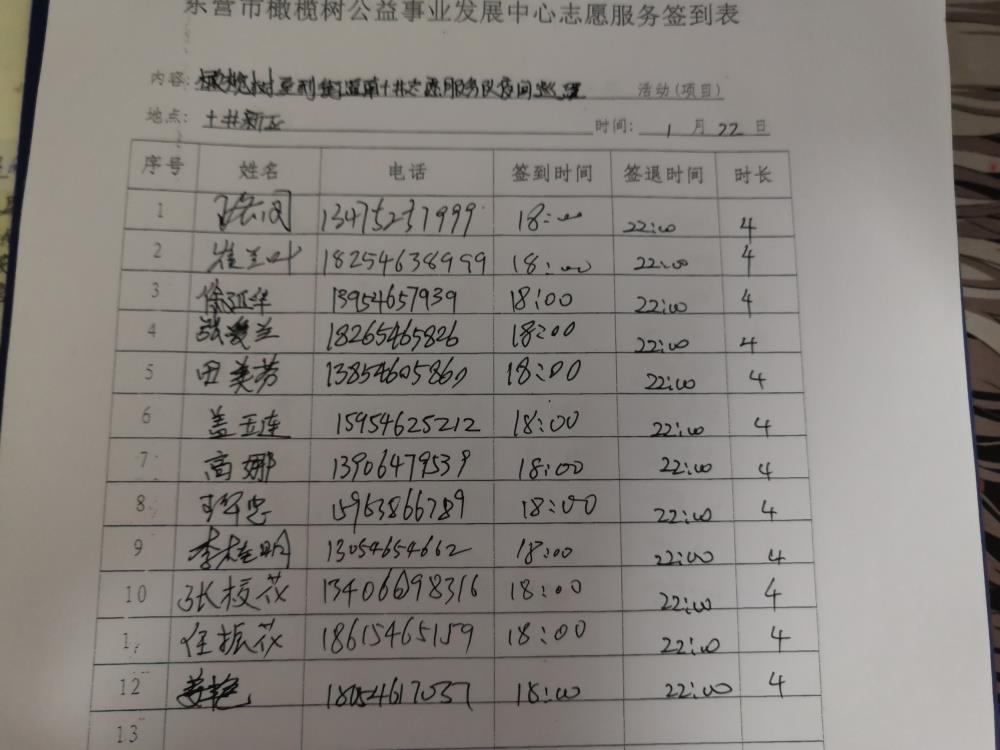 东营市橄榄树公益事业发展中心志愿服务签到表
内容: 橄榄树 志愿服务队夜间巡逻 活动(项目)
地点: 时间: 1 月 22 日
序号 姓名 电话 签到时间 签退时间 时长
1 13475237999 18:00 22:00 4
2 崔兰叶 18254638999 18:00 22:00 4
3 徐延华 13954657939 18:00 22:00 4
4 张爱兰 18265465826 18:00 22:00 4
5 田美芳 13854605860 18:00 22:00 4
6 盖玉连 15954625212 18:00 22:00 4
7 高娜 13906479539 18:00 22:00 4
8 15963866789 18:00 22:00 4
9 李桂明 13054654662 18:00 22:00 4
10 张校花 13406698316 18:00 22:00 4
1 任振花 18615465159 18:00 22:00 4
12 姜艳 18054617037 18:00 22:00 4
13